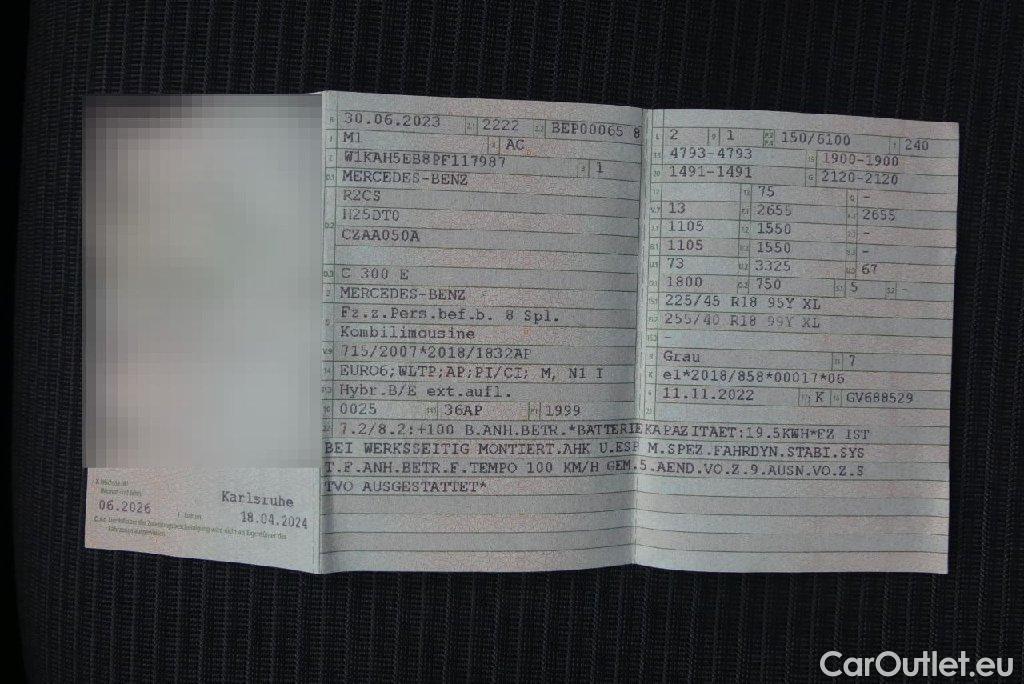 30.06.2023 2222 BEP00065 8
M1 AC
W1KAH5EB8PF117987 1
MERCEDES-BENZ
R2CS
H25DT0
CZAA050A
C 300 E
MERCEDES-BENZ
Fz.z.Pers.bef.b. 8 Spl.
Kombilimousine
715/2007*2018/1832AP
EURO6;WLTP;AP;PI/CI; M, N1 I
Hybr.B/E ext.aufl.
0025 36AP 1999
2 1 150/6100 240
4793-4793 1900-1900
1491-1491 2120-2120
75 -
13 2655 2655
1105 1550 -
1105 1550 -
73 3325 67
1800 750 5 -
225/45 R18 95Y XL
255/40 R18 99Y XL
-
Grau 7
e1*2018/858*00017*06
11.11.2022 K GV688529
7.2/8.2:+100 B.ANH.BETR.*BATTERIEKAPAZITAET:19.5KWH*FZ IST
BEI WERKSSEITIG MONTIERT.AHK U.ESP M.SPEZ.FAHRDYN.STABI.SYS
T.F.ANH.BETR.F.TEMPO 100 KM/H GEM.5.AEND.VO.Z.9.AUSN.VO.Z.S
TVO AUSGESTATTET*
06.2026
Karlsruhe
18.04.2024
CarOutlet.eu